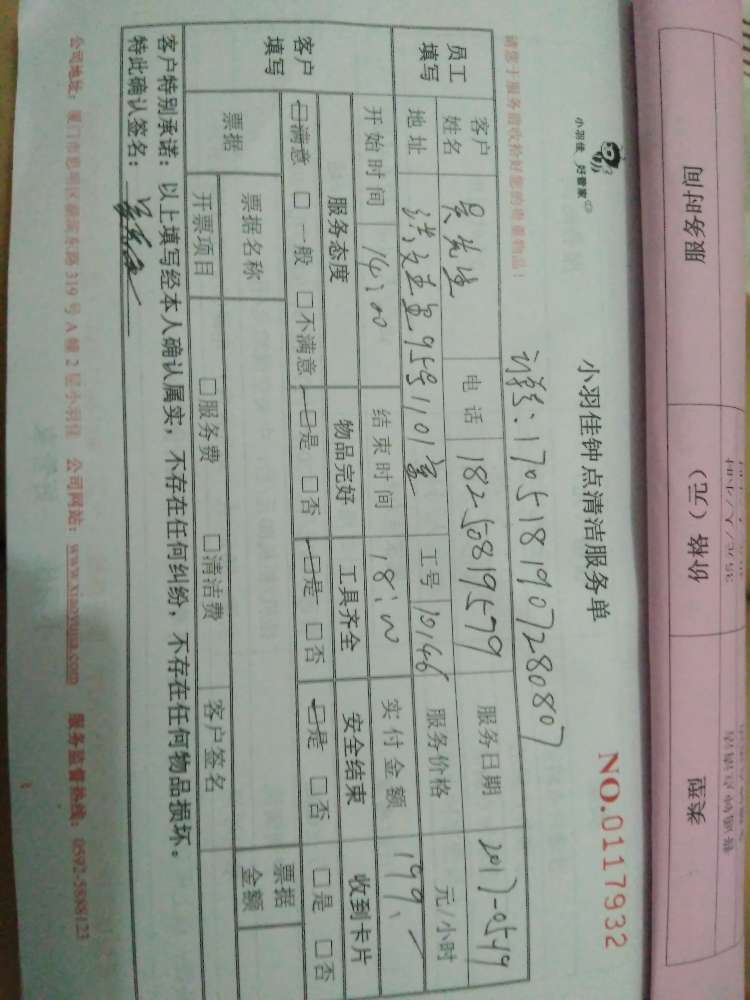 服务时间
价格（元）
类型
小羽佳 好管家
小羽佳钟点清洁服务单
NO.0117932
请您于服务前收拾好您的贵重物品！
1705181907280807
员工填写
客户姓名 吴先生 电话 18250819579 服务日期 2017-0519
地址 洪文五里95号1101室 工号 10146 服务价格 元/小时
客户填写
开始时间 14:00 结束时间 18:00 实付金额 199.
服务态度 物品完好 工具齐全 安全结束 收到卡片
□满意 □一般 □不满意 □是 □否 □是 □否 □是 □否 □是 □否
票据 票据名称 票据金额
开票项目 □服务费 □清洁费 客户签名
客户特别承诺：以上填写经本人确认属实，不存在任何纠纷，不存在任何物品损坏。
特此确认签名：
公司地址：厦门市思明区 319号A幢2层小羽佳 公司网站：www.xiaoyujia.com 服务监督热线：0592-5888123